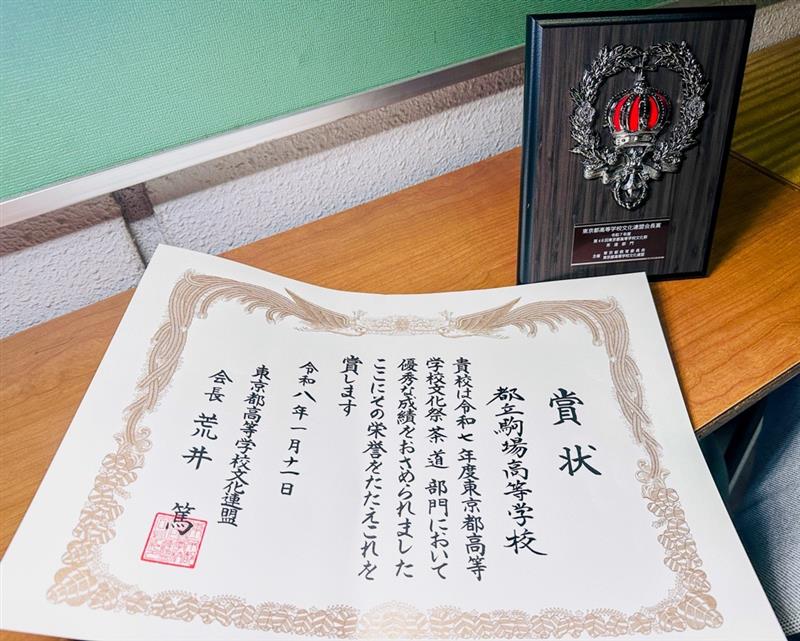 賞状
都立駒場高等学校
貴校は令和七年度東京都高等
学校文化祭茶道部門において
優秀な成績をおさめられました
ここにその栄誉をたたえこれを
賞します
令和八年一月十一日
東京都高等学校文化連盟
会長 荒井 篤
東京都高等学校文化連盟会長賞
令和7年度
第46回東京都高等学校文化祭
茶道部門
主催 東京都教育委員会
東京都高等学校文化連盟